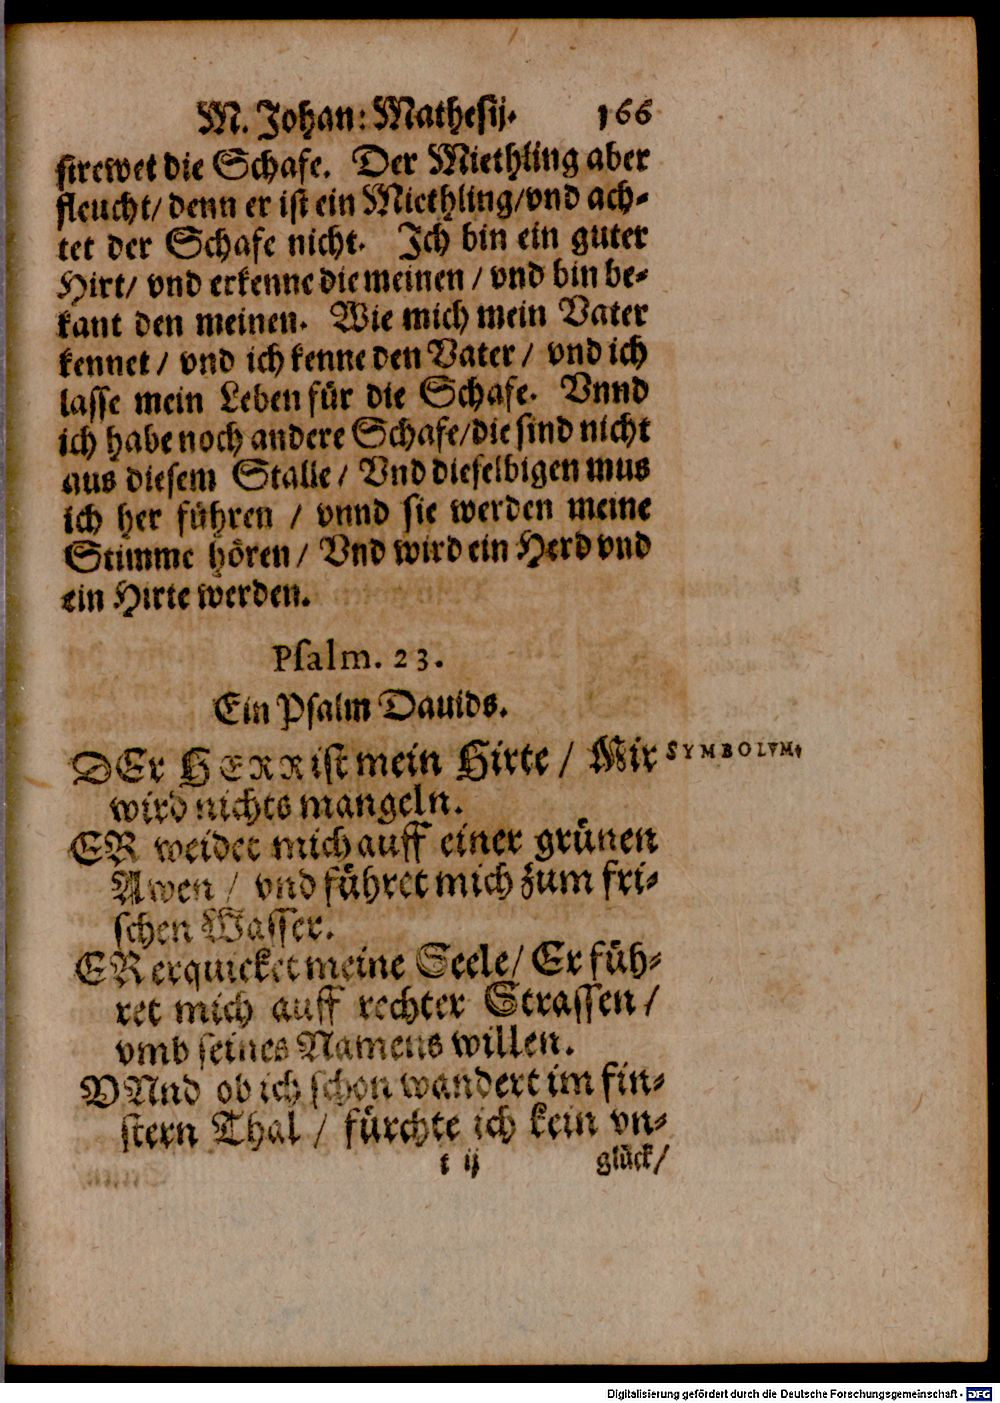 M. Johan: Mathesij. 166
strewet die Schafe. Der Miethling aber
fleucht/ denn er ist ein Miethling/vnd ach-
tet der Schafe nicht. Ich bin ein guter
Hirt/ vnd erkenne die meinen / vnd bin be-
kant den meinen. Wie mich mein Vater
kennet / vnd ich kenne den Vater / vnd ich
lasse mein Leben für die Schafe. Vnnd
ich habe noch andere Schafe/die sind nicht
aus diesem Stalle / Vnd dieselbigen mus
ich her führen / vnnd sie werden meine
Stimme hören / Vnd wird ein Herd vnd
ein Hirte werden.
Psalm. 23.
Ein Psalm Dauids.
DEr HERR ist mein Hirte / Mir SYMBOLVM.
wird nichts mangeln.
ER weidet mich auff einer grünen
Awen / vnd führet mich zum fri-
schen Wasser.
ER erquicket meine Seele/ Er füh-
ret mich auff rechter Strassen /
vmb seines Namens willen.
VNnd ob ich schon wandert im fin-
stern Thal / fürchte ich kein vn-
t ij glück/
Digitalisierung gefördert durch die Deutsche Forschungsgemeinschaft - DFG